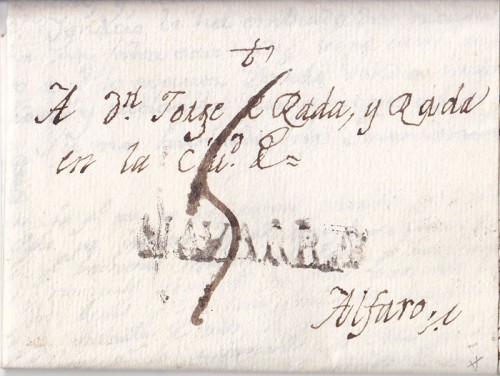 A Dn Jorge de Rada, y Rada
en la Ciud. de =
5
NAVARRA
Alfaro